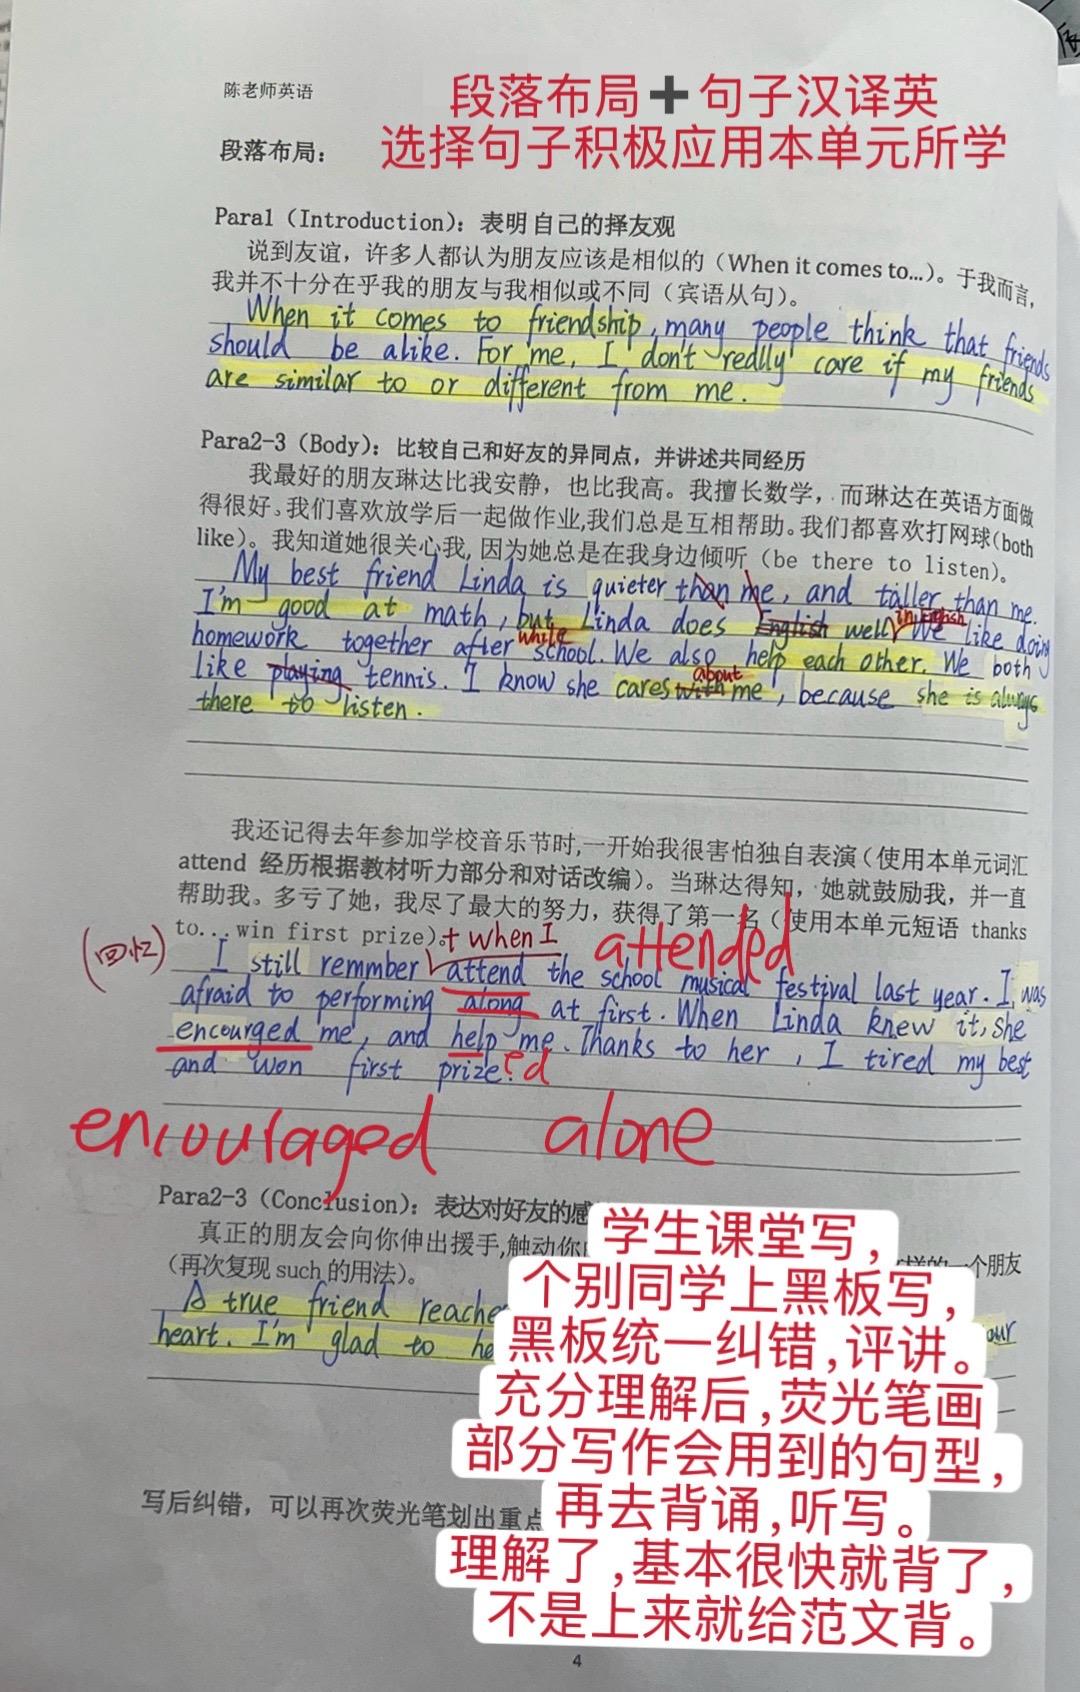 陈老师英语
段落布局➕句子汉译英
选择句子积极应用本单元所学
段落布局：
Para1（Introduction）：表明自己的择友观
说到友谊，许多人都认为朋友应该是相似的（When it comes to...）。于我而言，
我并不十分在乎我的朋友与我相似或不同（宾语从句）。
When it comes to friendship, many people think that friends
should be alike. For me, I don't redlly care if my friends
are similar to or different from me.
Para2-3（Body）：比较自己和好友的异同点，并讲述共同经历
我最好的朋友琳达比我安静，也比我高。我擅长数学，而琳达在英语方面做
得很好。我们喜欢放学后一起做作业,我们总是互相帮助。我们都喜欢打网球(both
like)。我知道她很关心我, 因为她总是在我身边倾听（be there to listen)。
My best friend Linda is quieter than me, and taller than me.
I'm good at math, but Linda does English well We like doing
in English
while
homework together after school. We also help each other. We both
about
like playing tennis. I know she cares with me, because she is always
there to listen.
我还记得去年参加学校音乐节时,一开始我很害怕独自表演（使用本单元词汇
attend 经历根据教材听力部分和对话改编）。当琳达得知，她就鼓励我，并一直
帮助我。多亏了她，我尽了最大的努力，获得了第一名（使用本单元短语 thanks
to...win first prize)。
+ when I
attended
(回忆)
I still remmber attend the school musical festival last year. I was
afraid to performing along at first. When Linda knew it, she
encourged me, and help me. Thanks to her, I tired my best
ed
and won first prize.
encouraged alone
Para2-3（Conclusion）：表达对好友的感
真正的朋友会向你伸出援手,触动你
一个朋友
（再次复现 such 的用法）。
A true friend reache
our
heart. I'm glad to ha
学生课堂写，
个别同学上黑板写，
黑板统一纠错，评讲。
充分理解后，荧光笔画
部分写作会用到的句型，
再去背诵，听写。
理解了，基本很快就背了，
不是上来就给范文背。
写后纠错，可以再次荧光笔划出重点
4